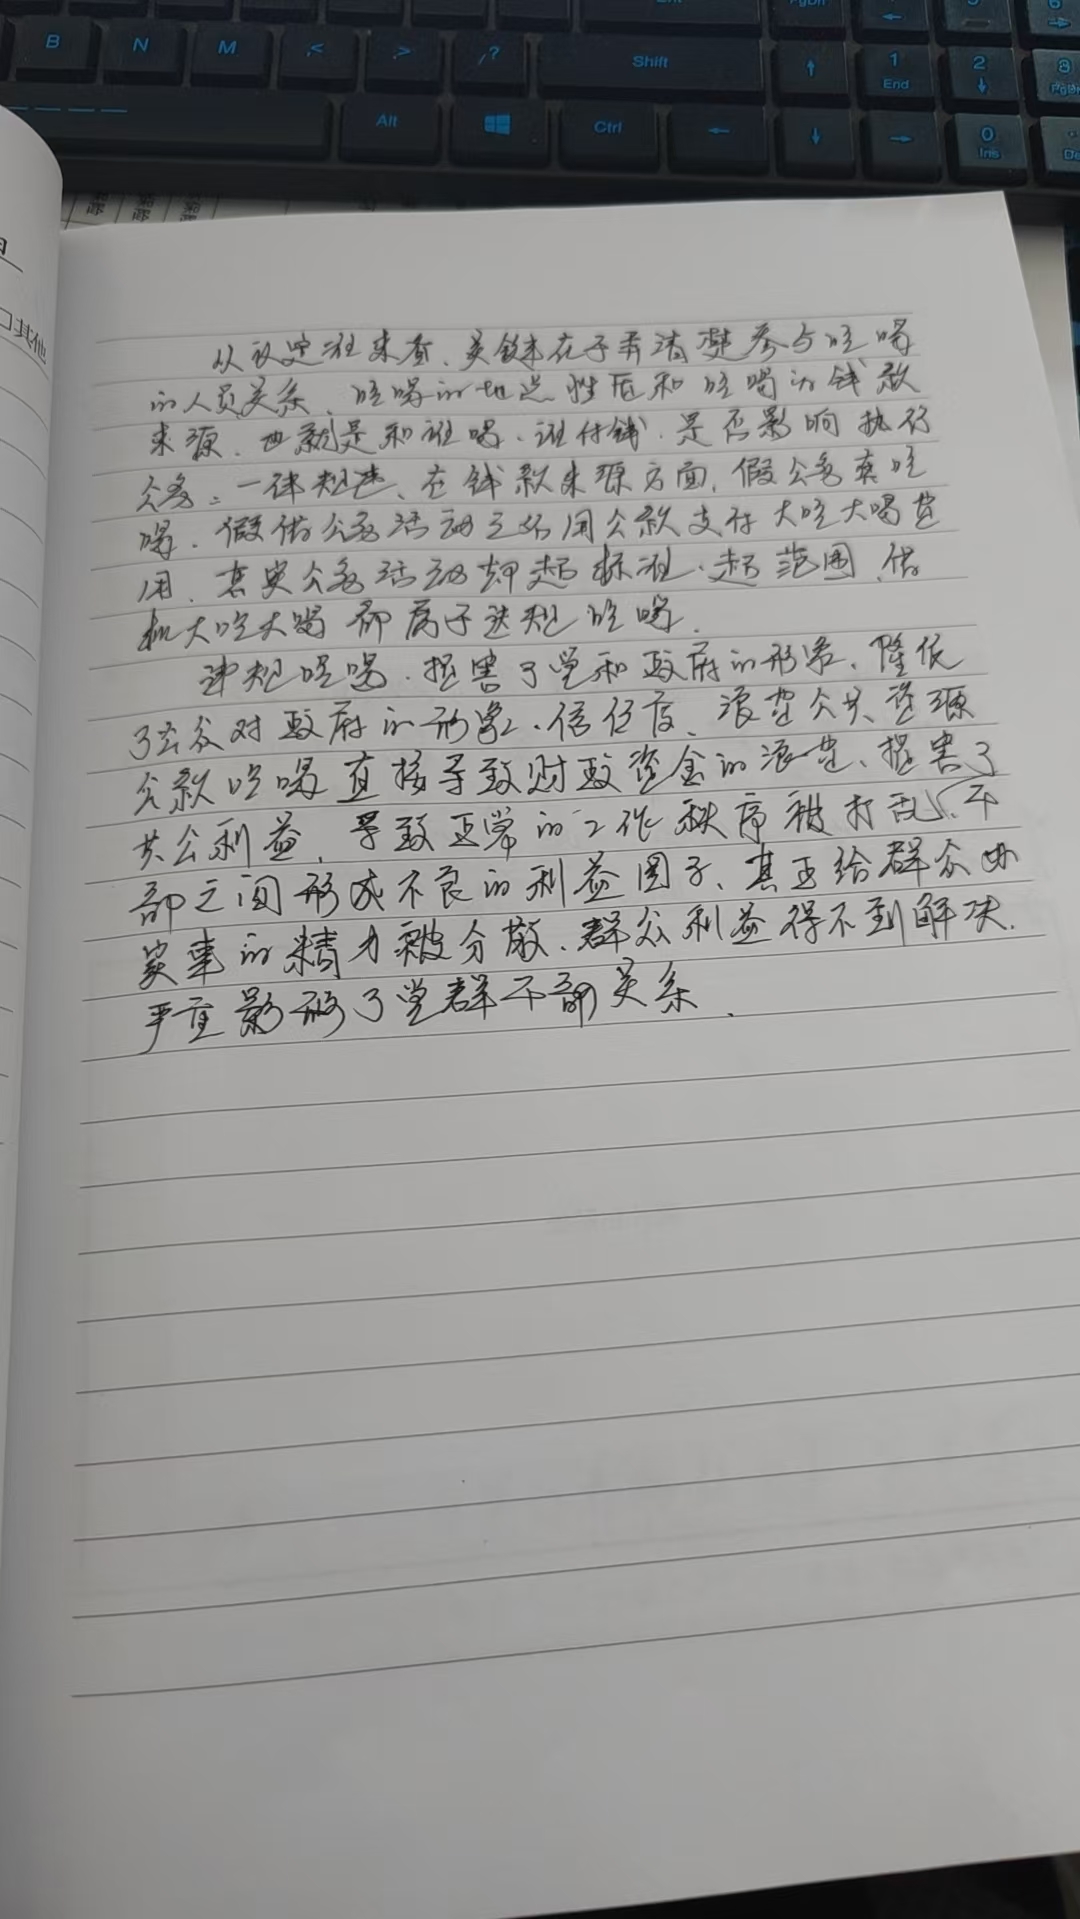 B N M ,< .> /? Shift ↑ 1 End 2 ↓
Alt Ctrl ← ↓ → 0 Ins
其他
从认定标准来看、关键在于弄清楚参与吃喝
的人员关系、吃喝的地点性质和吃喝的钱款
来源、也就是和谁喝、谁付钱、是否影响执行
公务。一律规定、在钱款来源方面,假公务真吃
喝、假借公务活动之名用公款支付大吃大喝费
用、真实公务活动却超标准、超范围、借
机大吃大喝都属于违规吃喝.
违规吃喝、损害了党和政府的形象、降低
了公众对政府的形象、信任度、浪费公共资源
公款吃喝直接导致财政资金的浪费、损害了
共公利益、导致正常的工作秩序被打乱、干
部之间形成不良的利益圈子、甚至给群众办
实事的精力被分散、群众利益得不到解决.
严重影响了党群干部关系.